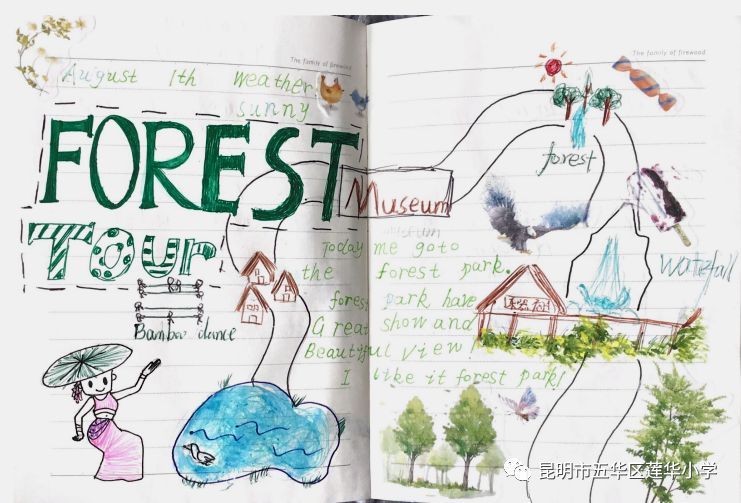 The family of firewood
August 1th Weather
sunny
FOREST
Tour
Bamboo dance
The family of firewood
forest
Museum
waterfall
Today me goto
the forest park.
forest park have
Great show and
Beautiful view!
I like it forest park!
昆明市五华区莲华小学